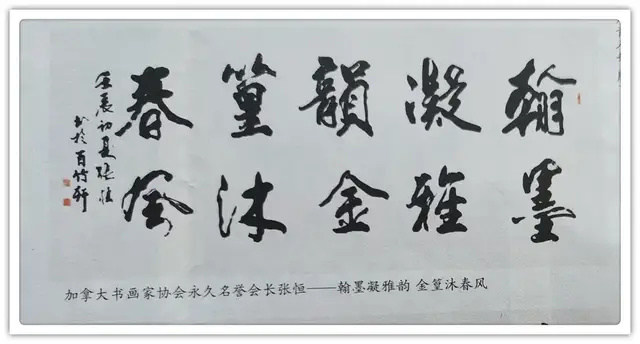 翰墨
凝雅
韻金
篁沐
春風
壬辰初夏張恒
书於百竹軒
加拿大书画家协会永久名誉会长张恒——翰墨凝雅韵 金篁沐春风